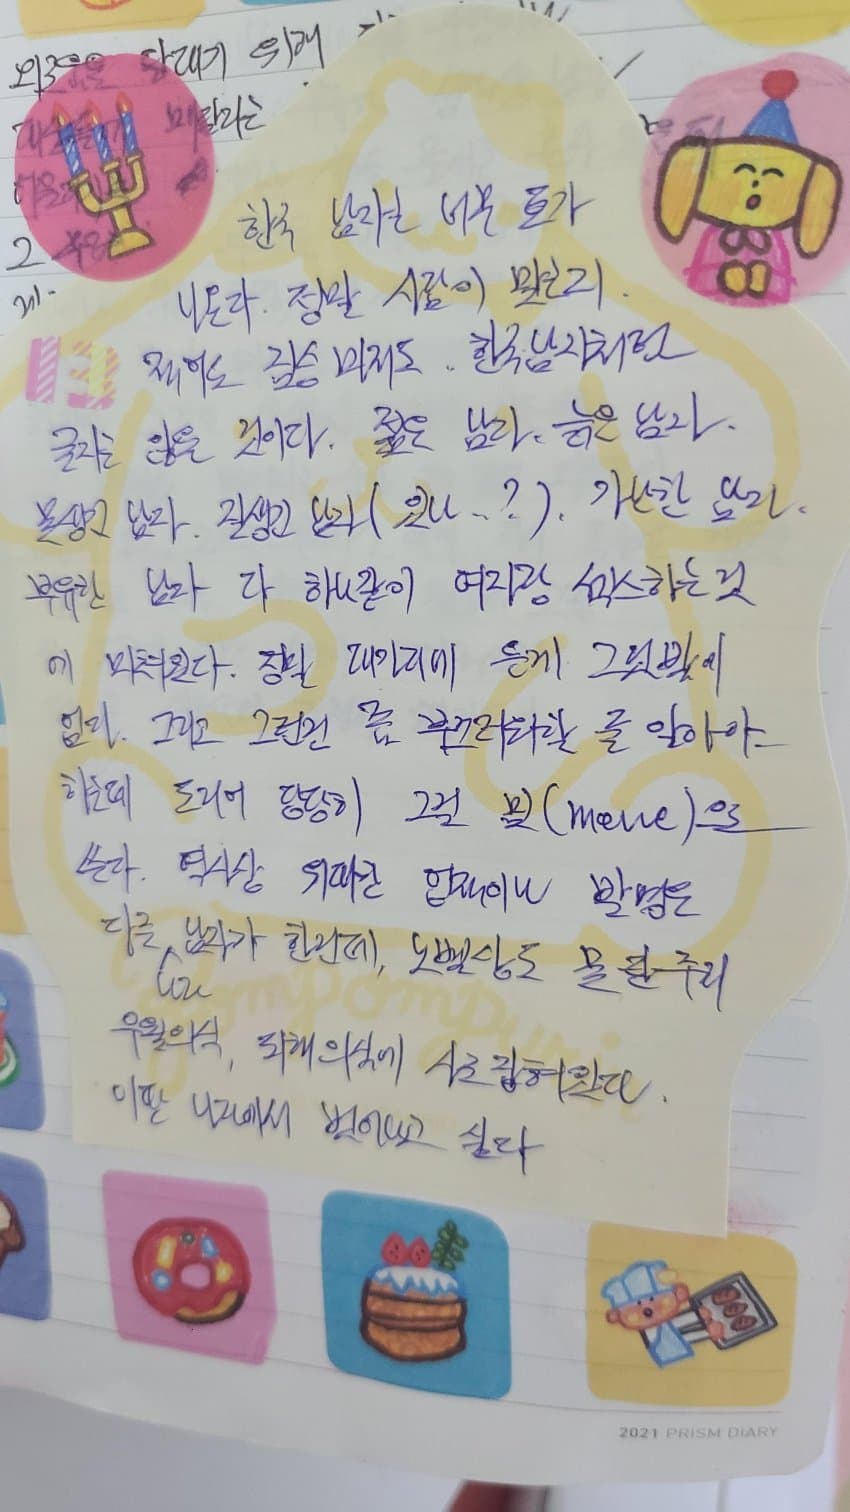 위해
한국 남자는 너무 토가
나온다. 정말 사람이 말인지.
적어도 짐승 마저도. 한국남자처럼
굴지는 않을 것이다. 젊은 남자. 늙은 남자.
못생긴 남자. 잘생긴 남자(있나..?). 가난한 남자.
부유한 남자 다 하나같이 여자랑 섹스하는 것
에 미쳐있다. 정말 대가리에 든게 그것밖에
없다. 그리고 그런건 좀 부끄러워할 줄 알아야
하는데 도리어 당당히 그걸 밈(meme)으로
쓴다. 역사상 위대한 업적이나 발명은
다른 남자가 한건데, 노벨상도 못 탄 주제
우월의식, 피해의식에 사로잡혀있다.
이딴 나라에서 벗어나고 싶다
2021 PRISM DIARY